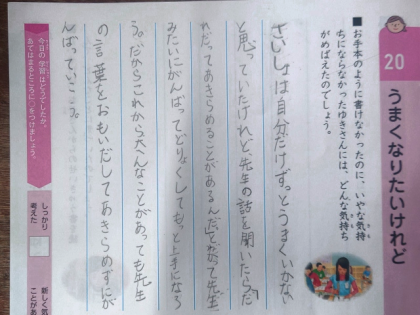 20
うまくなりたいけれど
■お手本のように書けなかったのに、いやな気持
ちにならなかったゆきさんには、どんな気持ち
がめばえたのでしょう。
さいしょは自分だけずっとうまくいかない
と思っていたけれど、先生の話を聞いたら「だ
れだってあきらめることがあるんだ」とわかって先生
みたいにがんばってどりょくしてもっと上手になろ
う。だからこれからどんなことがあっても先生
の言葉をおもいだしてあきらめずにが
んばっていこう。
今日の学習はどうでしたか。
あてはまるところに○をつけましょう。
しっかり
考えた
新しく気
ことがあ